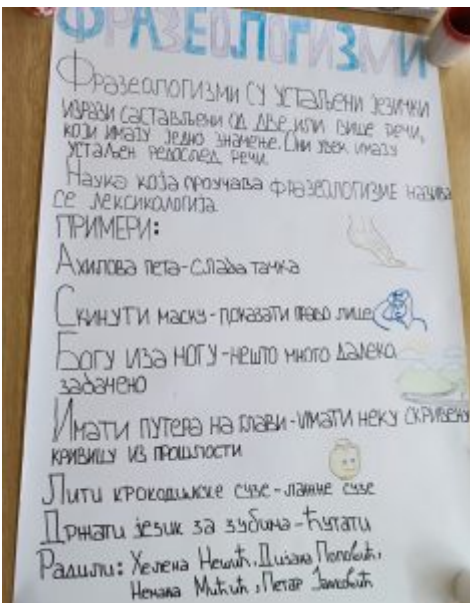 ФРАЗЕОЛОГИЗМИ
Фразеологизми су устаљени језички
изрази састављени од две или више речи,
који имају једно значење. Они увек имају
устаљен редослед речи.
Наука која проучава фразеологизме назива
се лексикологија.
ПРИМЕРИ:
Ахилова пета-слаба тачка
Скинути маску-показати право лице
Богу иза ногу-нешто много далеко
забачено
Имати путера на глави-имати неку скривену
кривицу из прошлости
Лити крокодилске сузе-лажне сузе
Држати језик за зубима-ћутати
Радили: Хелена Нешић, Поповић,
Немања Митић, Петар